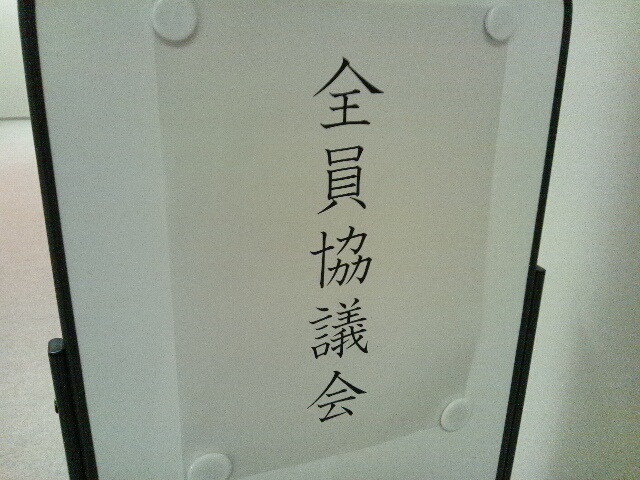 全員協議会